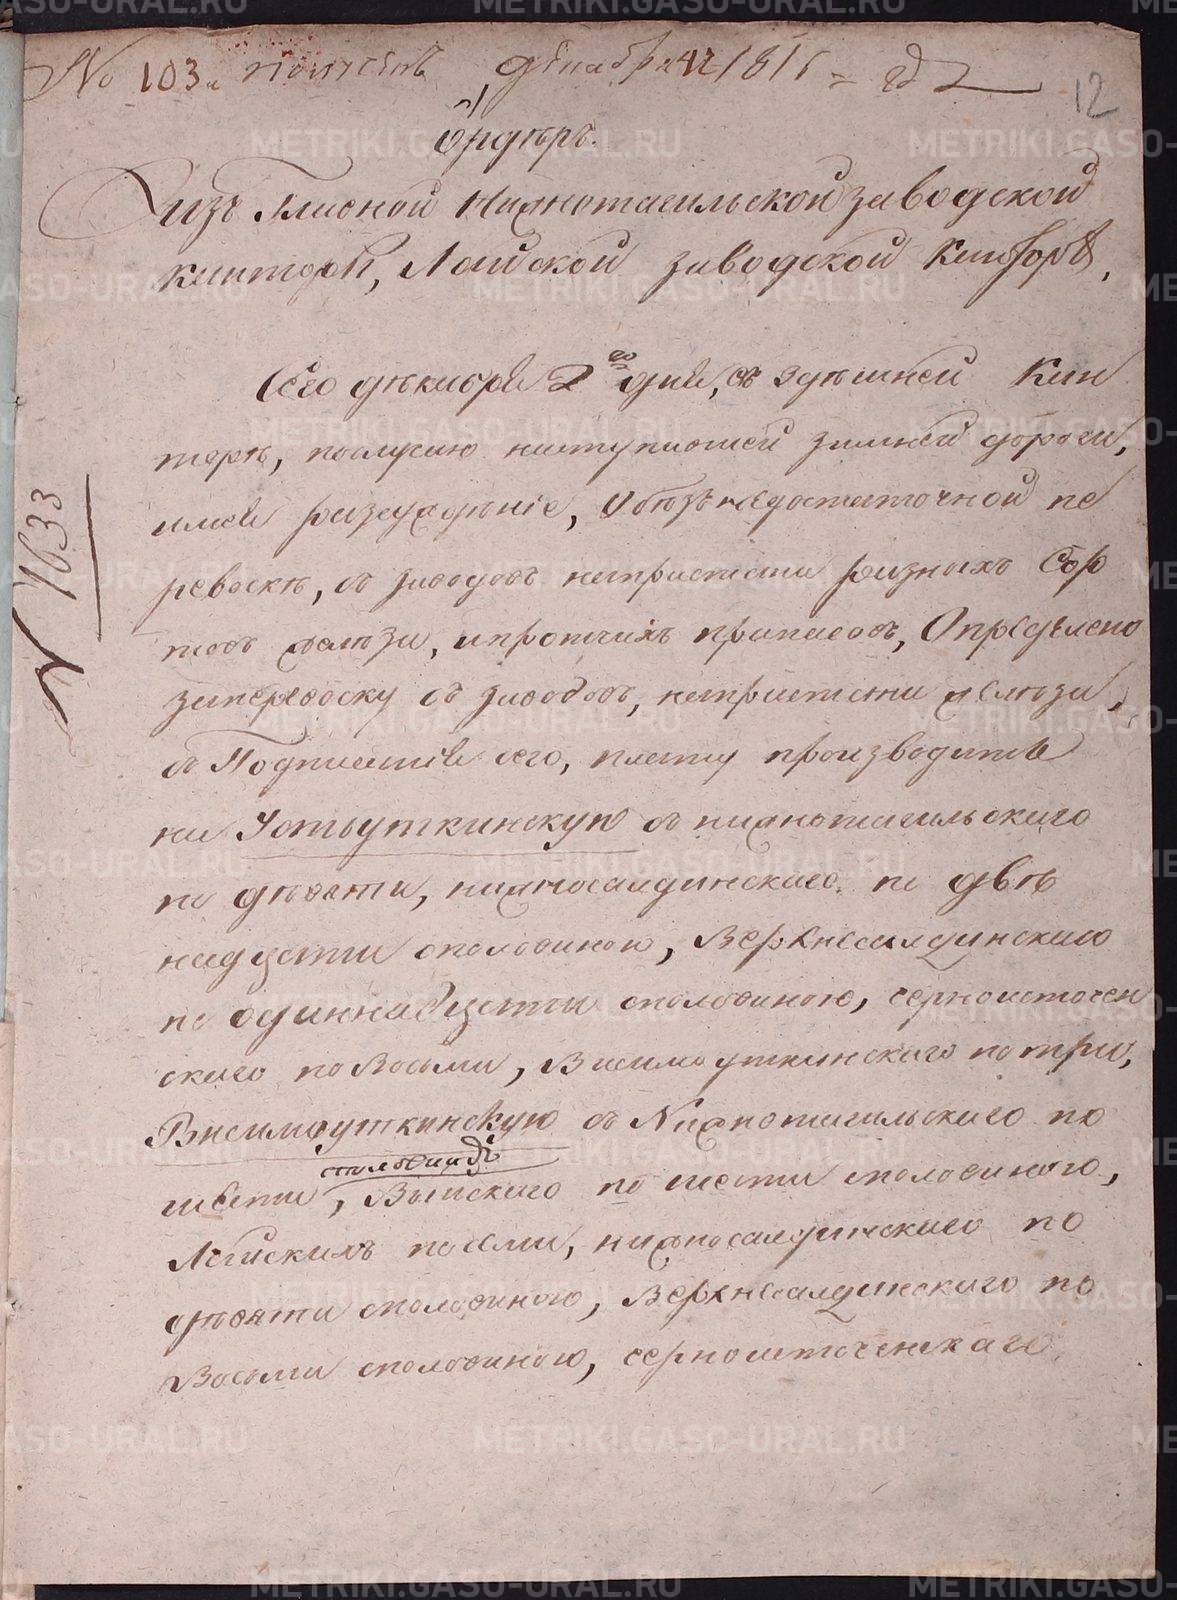 No 103й полученъ декабря 12 1816 = го д
12
Ордеръ.
изъ Главной Нижнотагильской заводской
канторы, Лайской заводской канторѣ,
Сего декабря 2го дня, въ здешней Кан
торѣ, послучаю наступившей зимней дороги,
имев разсуждѣніе, Обезънедостаточной пе
ревоскѣ, съ заводовъ напристани разныхъ Сор
товъ железа, ипротчихъ припасовъ, Определено
заперевоску съ заводовъ, напристани железа,
съ Подписания сего, плату производить
на Устьуткинскую съ нижнотагильского
по девяти, нижносалдинского по двѣ
надцати споловиною, Верхнесалдинского
по одиннадцати споловиною, черноисточен
ского по восьми, Висимоуткинского по три,
Висимоуткинскую съ Нижнотагильского по
шести споловиной, Выйского по шести споловиною,
Лайскихъ посеми, нижносалдинского по
девяти споловиною, Верхнесалдинского по
Восьми споловиною, черноисточенскаго
N 4633
METRIKI.GASO-URAL.RU